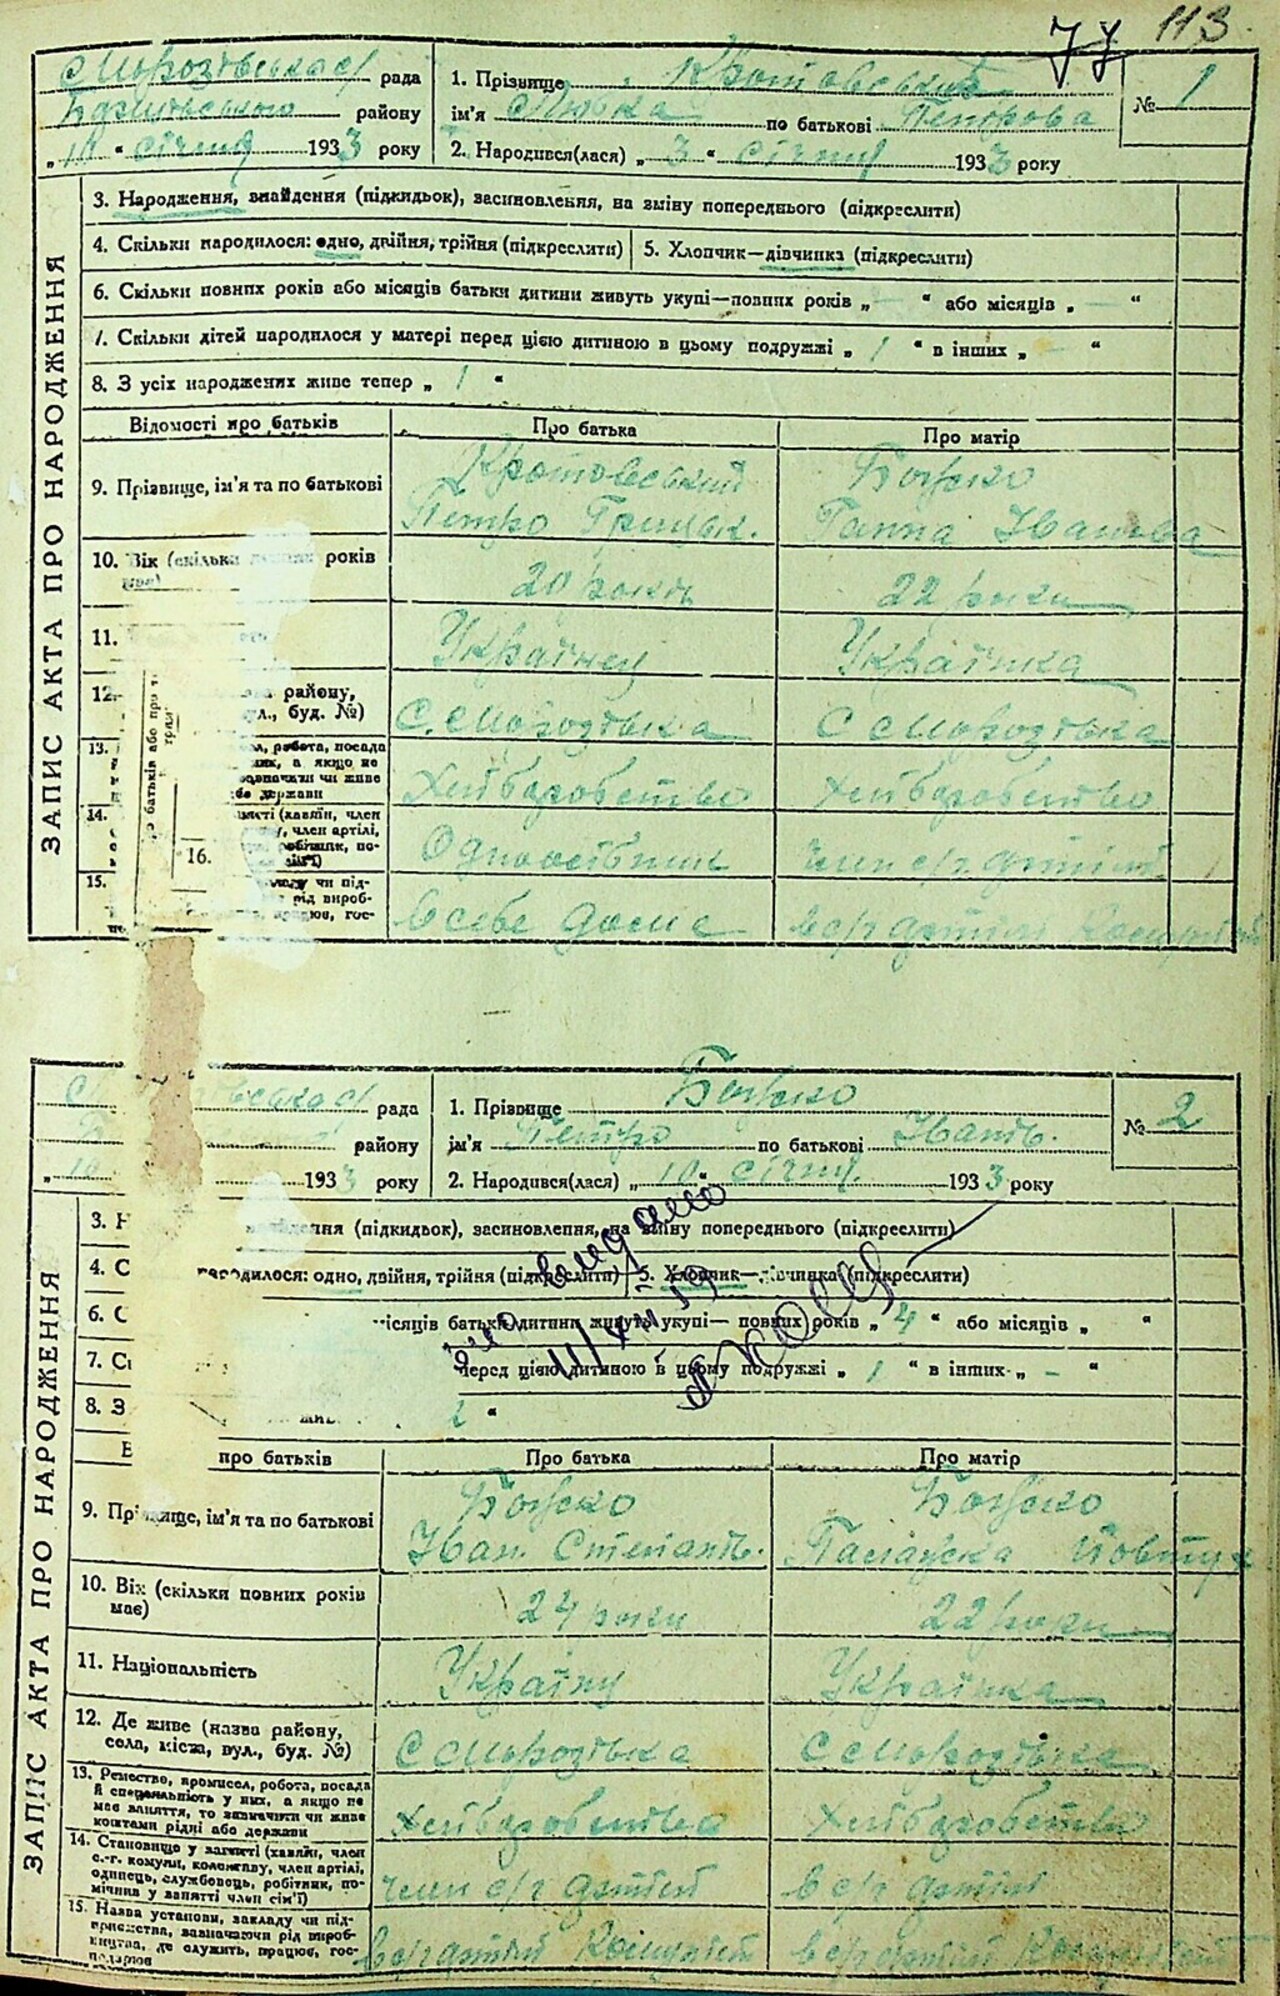 77 113
Морозівська с/ рада
району
„ 10 “ січня 1933 року
1. Прізвище Кротовський
ім'я Любка по батькові Петрова
2. Народився(лася) „ 3 “ січня 1933 року
№ 1
ЗАПИС АКТА ПРО НАРОДЖЕННЯ
3. Народження, знайдення (підкидьок), засиновлення, на зміну попереднього (підкреслити)
4. Скільки народилося: одно, двійня, трійня (підкреслити) 5. Хлопчик—дівчинка (підкреслити)
6. Скільки повних років або місяців батьки дитини живуть укупі—повних років „ — “ або місяців „ — “
7. Скільки дітей народилося у матері перед цією дитиною в цьому подружжі „ 1 “ в інших „ — “
8. З усіх народжених живе тепер „ 1 “
Відомості про батьків Про батька Про матір
9. Прізвище, ім'я та по батькові
Кротовський Божко
Петро Грицьк. Ганна Іванова
10. Вік (скільки років
20 років 22 роки
11. Українец Українка
12. району,
ул., буд. №) С. Морозівка С Морозівка
13. робота, посада
а якщо не
чи живе
держави
Хліборобство Хліборобство
14. (хазяїн, член
член артілі,
16.
Одноосібник член с/г артілі
15. чи під-
рід вироб-
гос-
В себе дома в с/г артілі
рада
району
„ 10 1933 року
1. Прізвище Божко
ім'я Петро по батькові Іванів.
2. Народився(лася) „ 10 “ січня 1933 року
№ 2
ЗАПИС АКТА ПРО НАРОДЖЕННЯ
3. (підкидьок), засиновлення, на зміну попереднього (підкреслити)
4. народилося: одно, двійня, трійня (підкреслити) 5. Хлопчик—дівчинка (підкреслити)
6. місяців батьки дитини живуть укупі— повних років „ 4 “ або місяців „ “
7. перед цією дитиною в цьому подружжі „ 1 “ в інших „ — “
8. З
про батьків Про батька Про матір
9. Прізвище, ім'я та по батькові
Божко Божко
Іван. Степанів. Палажка Йовтух
10. Вік (скільки повних років
має)
24 роки 22 роки
11. Національність Українц Українка
12. Де живе (назва району,
села, міста, вул., буд. №) С Морозівка С Морозівка
13. Ремество, промисел, робота, посада
й спеціальність у них, а якщо не
має заняття, то зазначити чи живе
коштами рідні або держави
Хліборобство Хліборобство
14. Становище у занятті (хазяїн, член
с.-г. комуни, колективу, член артілі,
одинець, службовець, робітник, по-
мічник у занятті член сім'ї)
член с/г артілі в с/г артілі
15. Назва установи, закладу чи під-
приємства, зазначаючи рід вироб-
ництва, де служить, працює, гос-
подарює
в с/г артілі в с/г артілі